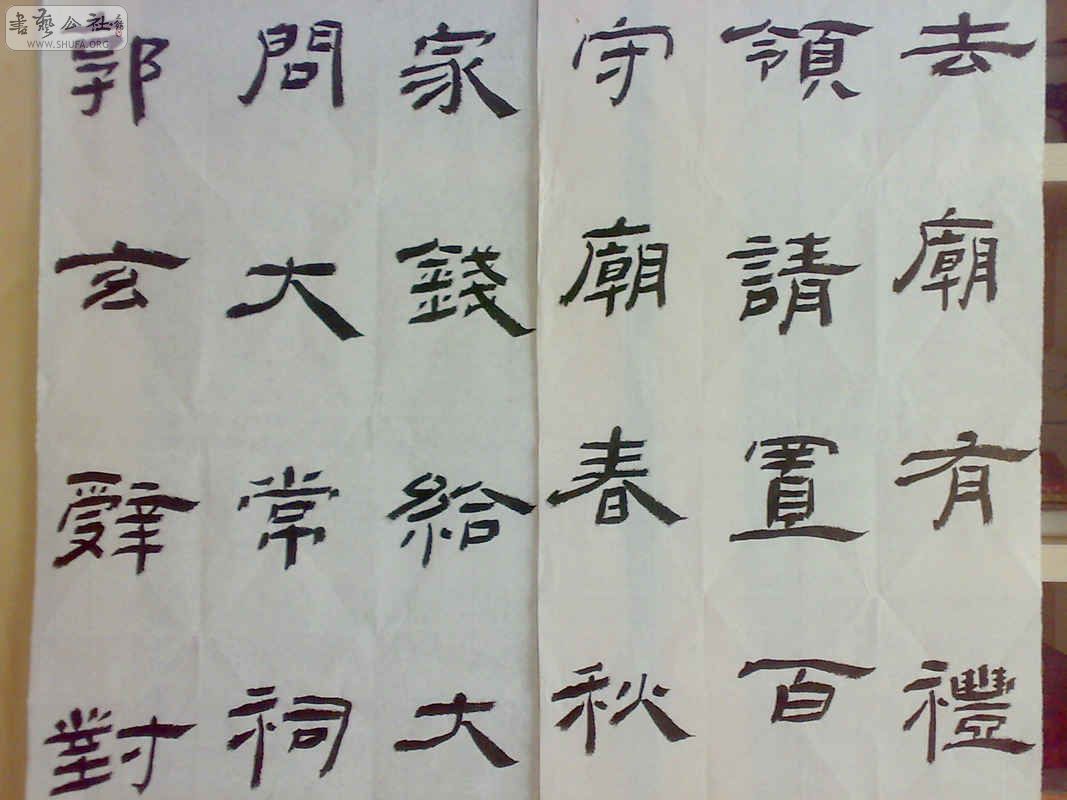 去廟有禮
領請置百
守廟春秋
家錢給大
問大常祠
郭玄辤對
書藝公社
WWW.SHUFA.ORG